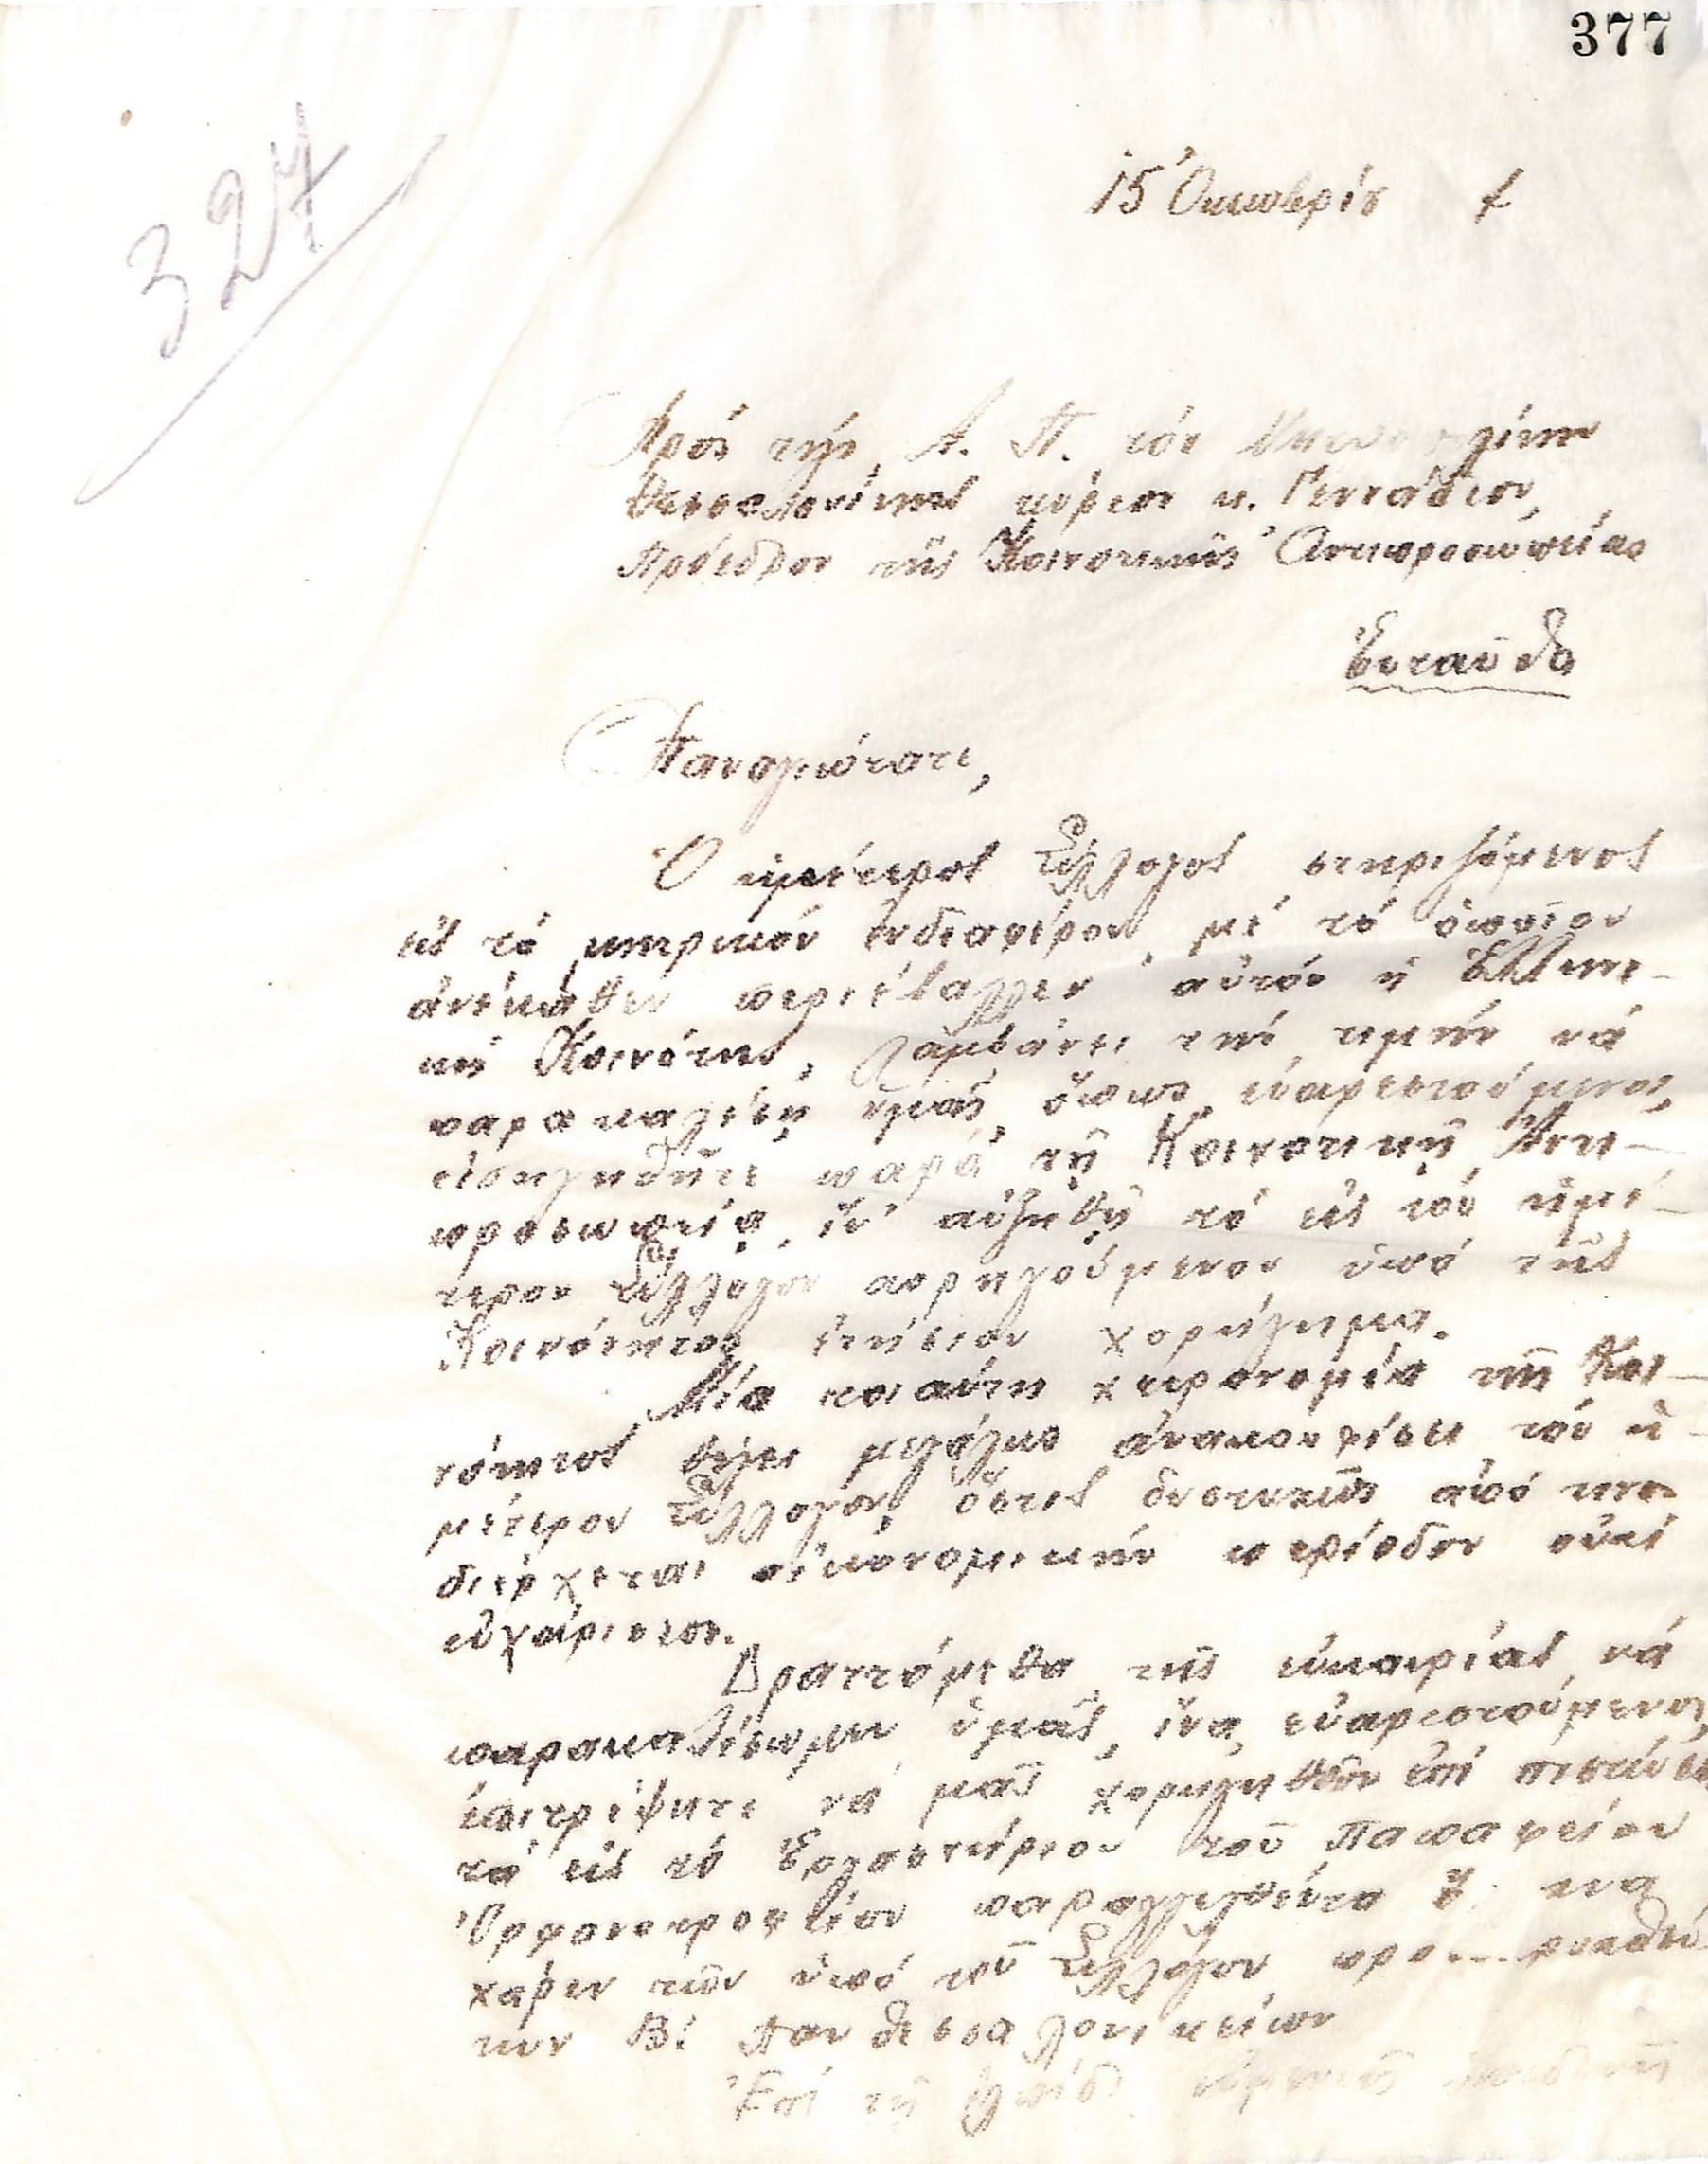 377
327
15 Ὀκτωβρίου
Πρὸς τὴν Α. Π. τὸν Μητροπολίτην
Θεσσαλονίκης κύριον κ. Γεννάδιον,
Πρόεδρον τῆς Κοινοτικῆς Ἀντιπροσωπείας
Ἐνταῦθα
Παναγιώτατε,
Ὁ ἡμέτερος Σύλλογος στηριζόμενος
εἰς τὸ μητρικόν ἐνδιαφέρον, μὲ τὸ ὁποῖον
ἀνέκαθεν περιέβαλλεν αὐτόν ἡ Ἑλληνι-
κή Κοινότης, λαμβάνει τὴν τιμήν νά
παρακαλέσῃ ὑμᾶς, ὅπως, εὐαρεστούμενος,
εἰσηγηθῆτε παρά τῇ Κοινοτικῇ Ἀντι-
προσωπείᾳ, ἵν' αὐξηθῇ τό εἰς τόν ἡμέ-
τερον Σύλλογον χορηγούμενον ὑπό τῆς
Κοινότητος ἐτήσιον χορήγημα.
Μία τοιαύτη χειρονομία τῆς Κοι-
νότητος θέλει μεγάλως ἀνακουφίσει τόν ἡ-
μέτερον Σύλλογον, ὅστις δυστυχῶς ἀπό τινος
διέρχεται οἰκονομικήν περίοδον οὐχί
εὐχάριστον.
Δραττόμεθα τῆς εὐκαιρίας νά
παρακαλέσωμεν ὑμᾶς, ἵνα, εὐαρεστούμενος,
ἐπιτρέψητε νά μᾶς χορηγηθῶσιν ἐπί πιστώσει
τά εἰς τό Ἐργαστήριον τοῦ Παπαφείου
Ὀρφανοτροφείου παραγγελθέντα
χάριν τῶν ὑπό τοῦ Συλλόγου
των Β! Πανθεσσαλονικείων
Ἐπί τῇ ἐλπίδι εὐμενοῦς ἀποδοχῆς